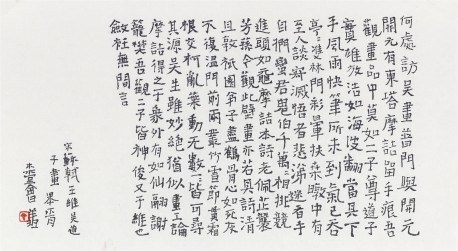 何處訪吳畫普門與開元
開元有東塔摩詰留手痕吾
觀畫品中莫如二子尊道子
實雄放浩如海波翻當其下
手風雨快筆所未到氣已吞
亭亭雙林間彩暈扶桑暾中有
至人談寂滅悟者悲涕迷者手
自捫蠻君鬼伯千萬萬相排競
進頭如黿摩詰本詩老佩芷襲
芳蓀今觀此壁畫亦若其詩清
且敦祇園弟子盡鶴骨心如死灰
不復溫門前兩叢竹雪節貫霜
根交柯亂葉動無數一一皆可尋
其源吳生雖妙絕猶以畫工論
摩詰得之於象外有如仙翮謝
籠樊吾觀二子皆神俊又于維也
斂衽無間言
宋蘇軾王維吳道
子畫